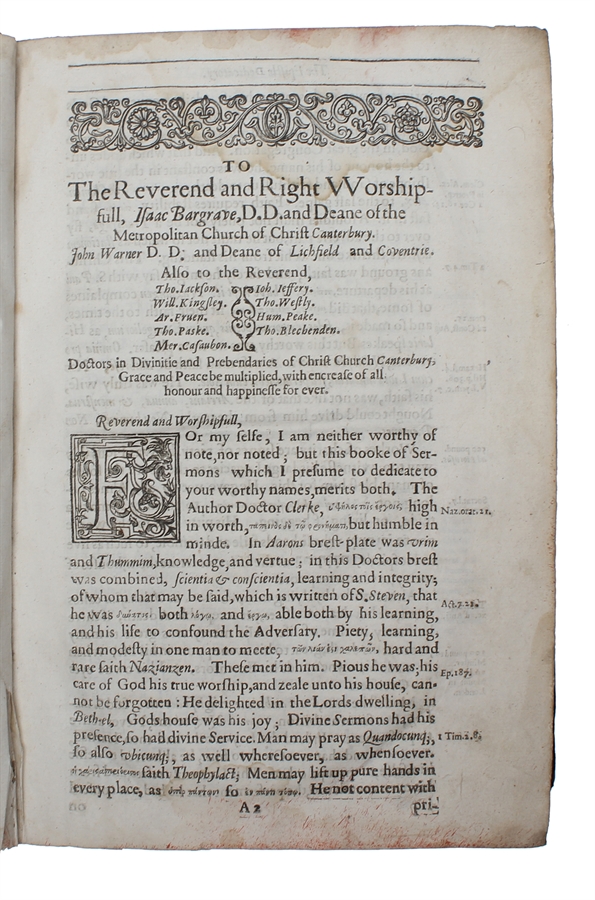 TO
The Reverend and Right VVorship-
full, Iſaac Bargrave, D.D. and Deane of the
Metropolitan Church of Chriſt Canterbury.
John Warner D. D; and Deane of Lichfield and Coventrie.
Alſo to the Reverend,
Tho. Iackſon. Ioh. Ieffery.
Will. Kingſley. Tho. Weſtly.
Ar. Fruen. Hum. Peake.
Tho. Paske. Tho. Blechenden.
Mer. Caſaubon.
Doctors in Divinitie and Prebendaries of Chriſt Church Canterbury,
Grace and Peace be multiplied, with encreaſe of all
honour and happineſſe for ever.
Reverend and Worſhipfull,
FOr my ſelfe, I am neither worthy of
note, nor noted; but this booke of Ser-
mons which I preſume to dedicate to
your worthy names, merits both. The
Author Doctor Clerke, high
in worth, but humble in
minde. In Aarons breſt-plate was vrim
and Thummim, knowledge, and vertue; in this Doctors breſt
was combined, ſcientia & conſcientia, learning and integrity;
of whom that may be ſaid, which is written of S. Steven, that
he was both λόγῳ, and ἔργῳ, able both by his learning,
and his life to confound the Adverſary. Piety, learning,
and modeſty in one man to meete, hard and
rare ſaith Nazianzen. Theſe met in him. Pious he was; his
care of God his true worſhip, and zeale unto his houſe, can-
not be forgotten: He delighted in the Lords dwelling, in
Beth-el, Gods houſe was his joy; Divine Sermons had his
preſence, ſo had divine Service. Man may pray as Quandocunq;,
ſo alſo vbicunq;, as well whereſoever, as whenſoever.
ſaith Theophylact; Men may lift up pure hands in
every place, as ὑπὲρ πάντων ſo ἐν παντὶ τόπῳ. He not content with
A 2 pri-
Naz. orat. 21.
Act. 7. 22.
Ep. 187.
1 Tim. 2. 8.